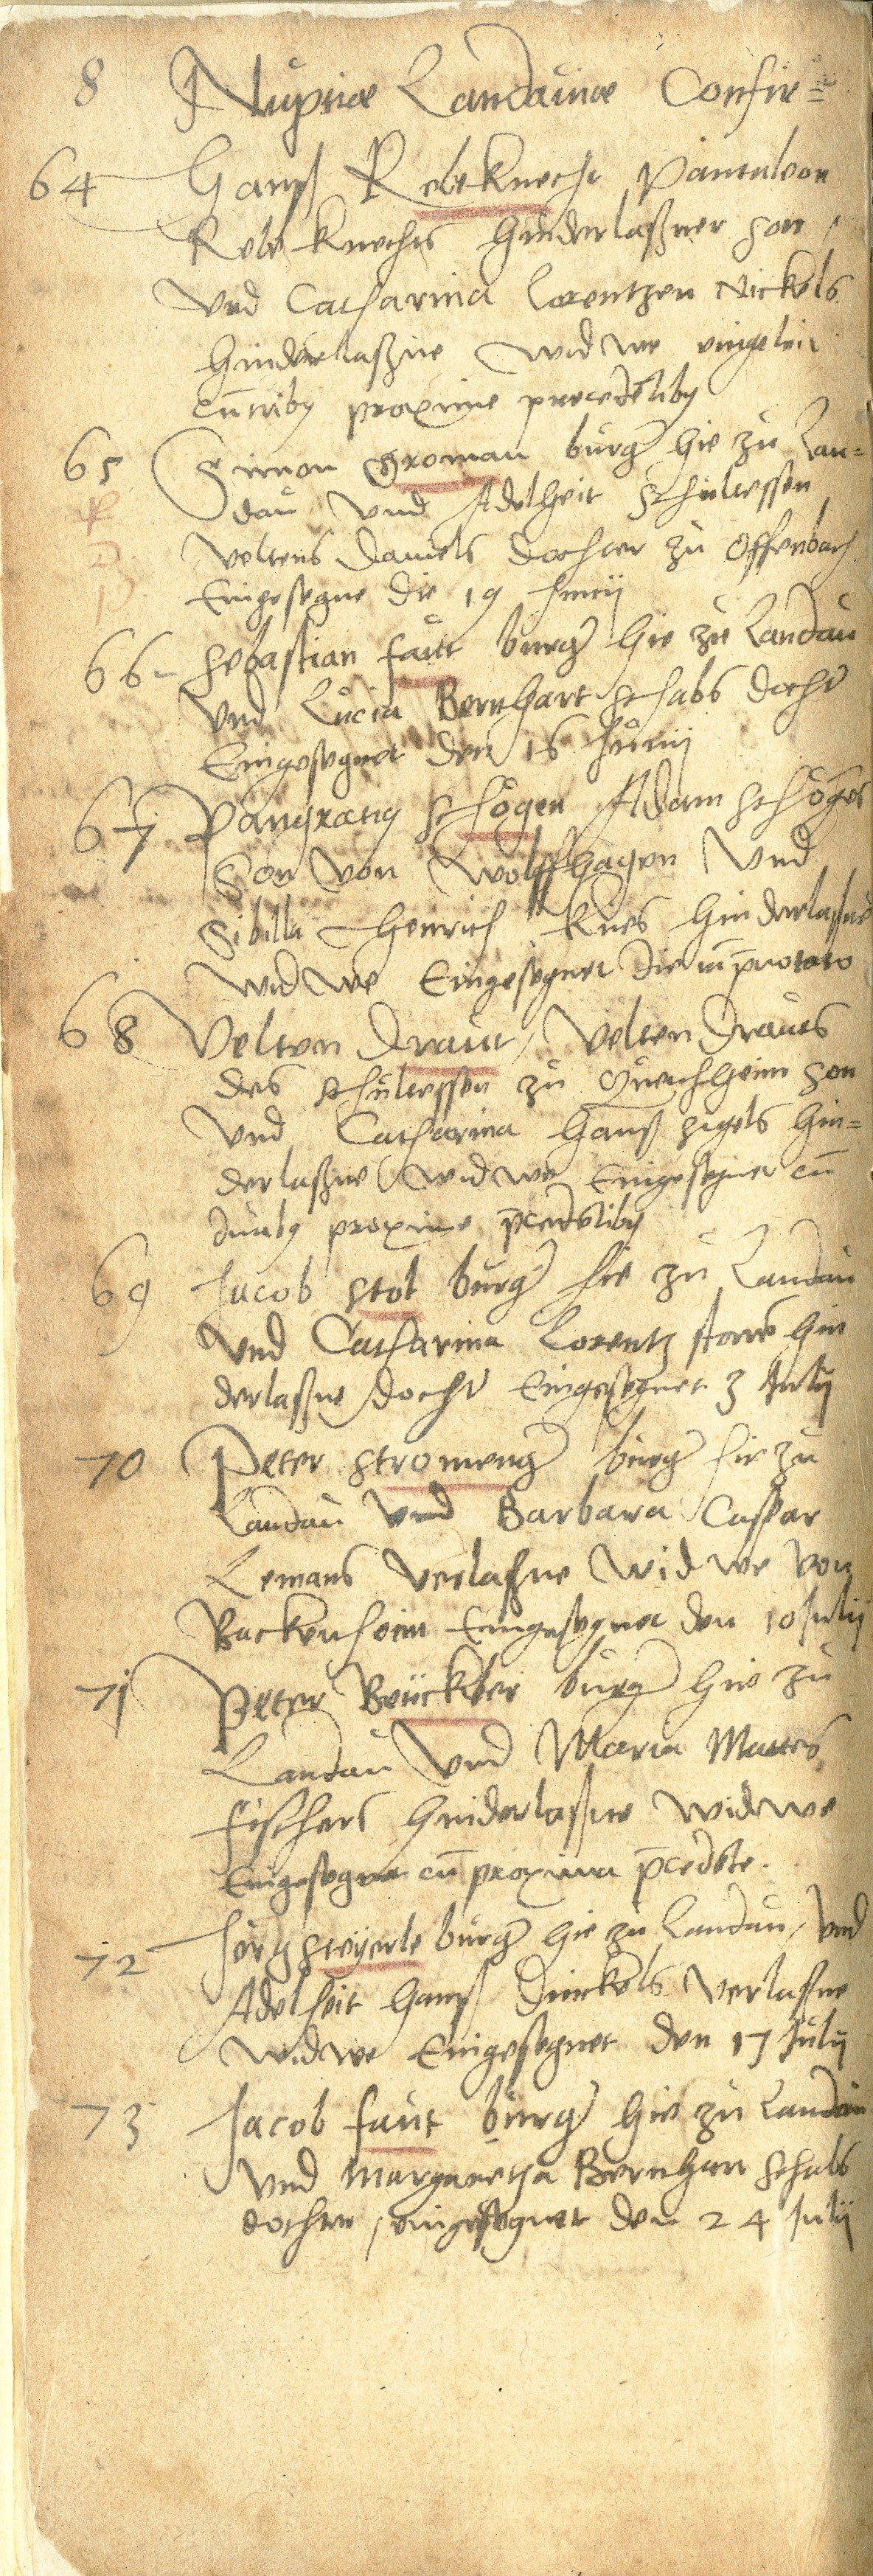 8 Nuptiæ Landauinæ Confir=
64 Hanß Rebeknecht Pantaleon
Rebe knechts hinderlaßner son /
vnd Catharina Lorentzen Nickels
hinderlaßne widwe eingeleit
cū tribꝰ proxime precedētibꝰ
65 Simon Groman burger hie zu Lan=
dau vnd Adelheit Schultessen
veltens Daniels dochter zu Offenbach
Eingesegnet die 19 Junij
66 Sebastian faut burger hie zu Landau
vnd Lucia Bernhart schabs dochter
Eingesegnet den 16 Junij
67 Pangratiꝰ schögen Adam schögens
Son von Wolffhagen vnd
Sibilla Henrich Kües hinderlaßne
widwe Eingesegnet die
68 Velten Draut / Velten Drauts
des schultessen zu Queichheim son
vnd Catharina Hanß zigels hin=
derlaßne widwe Eingesegnet cū
duabꝰ proxime p̄cedētibꝰ
69 Jacob stol burger hie zu Landau
vnd Catharina Lorentz hin
derlaßne dochter Eingesegnet 3 Julij
70 Peter stromenger burger hie zu
Landau vnd Barbara Caspar
Lemans verlaßne widwe von
Backenheim Eingesegnet den 10 Julij
71 Peter Brückber burger hie zu
Landau vnd Maria Mattes
fischers hinderlaßne widwe
Eingesegnet cū proxima p̄cedēte.
72 Jörg steyerle burger hie zu Landau / vnd
Adelheit Hanß Dinckels verlaßne
widwe Eingesegnet den 17 Julij
73 Jacob faut burger hie zu Landau
vnd Margaretha Bernhart schabs
dochter / eingesegnet den 24 Julij